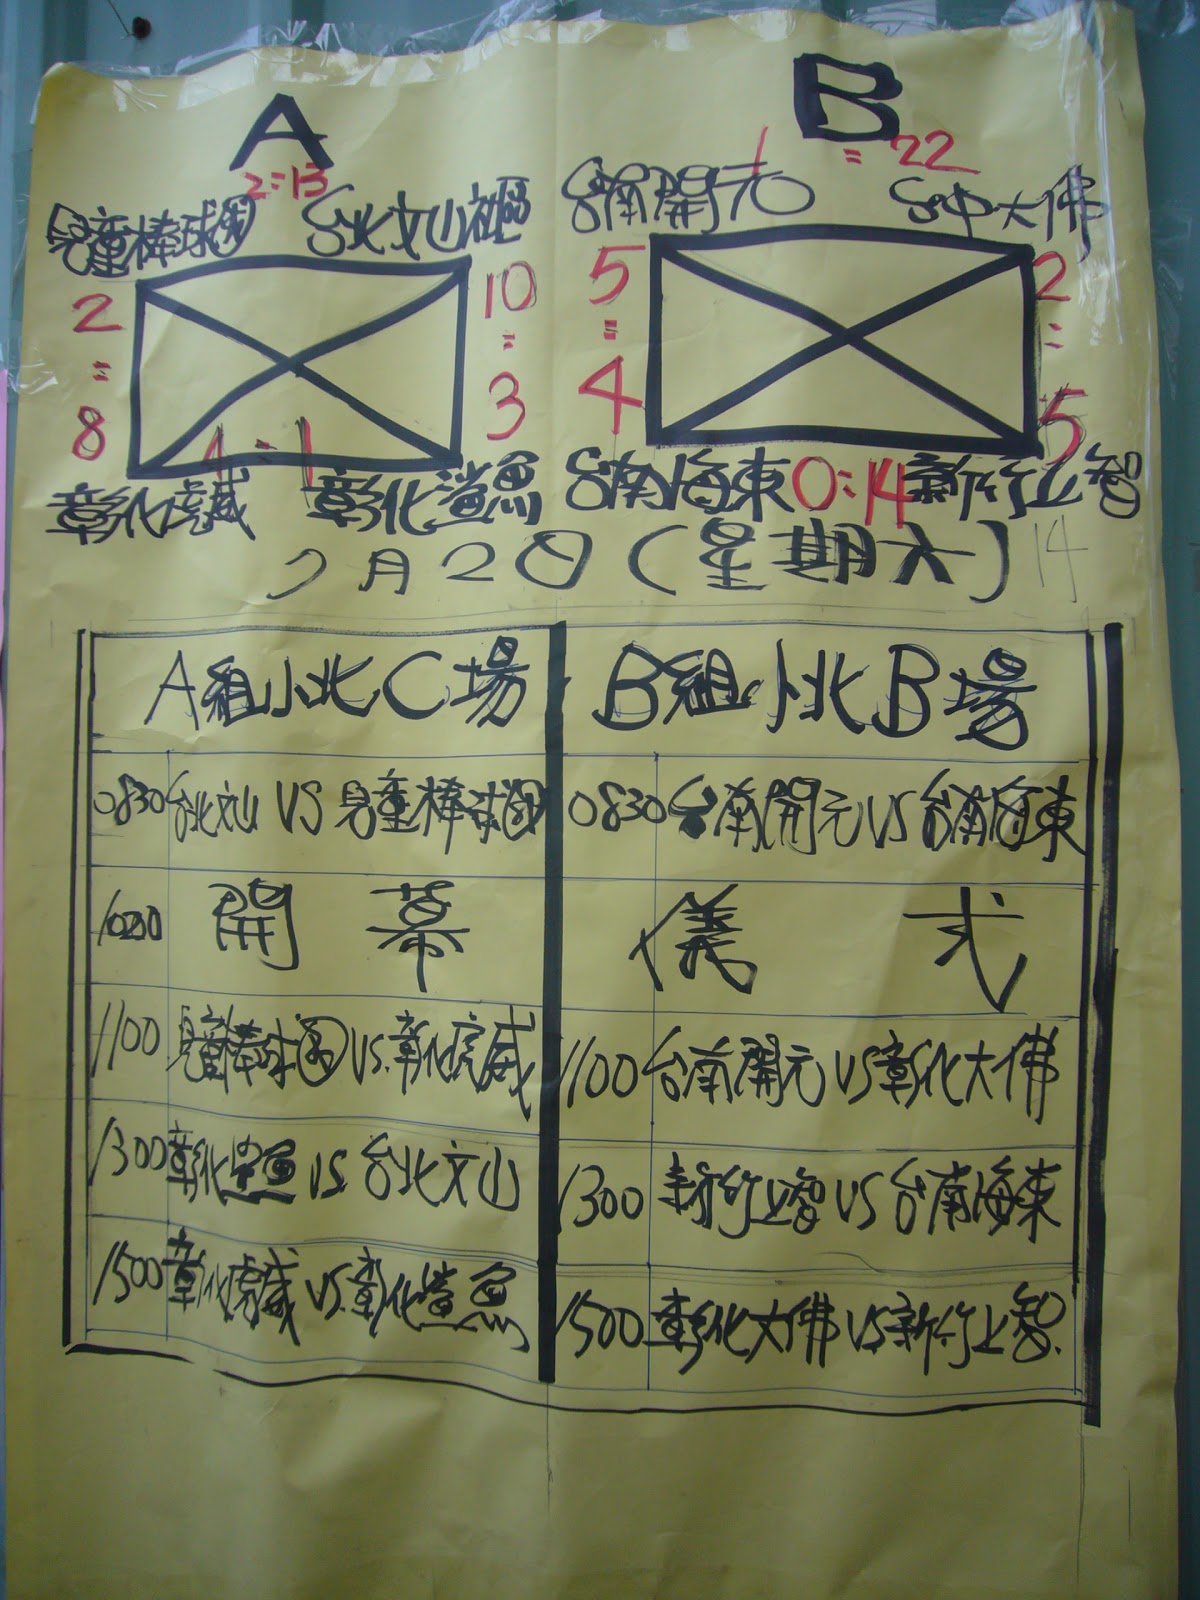 A
B
2:13
1 = 22
兒童棒球團
台北文山社區
台南開元
台中大佛
2
=
8
10
=
3
5
=
4
2
=
5
4=1
彰化虎威
彰化鯊魚
台南海東
0:14
新竹上智
7月2日(星期六)
14
A組小北C場
B組小北B場
0830 台北文山 VS 兒童棒球團
0830 台南開元VS台南海東
開幕儀式
1100 兒童棒球團VS.彰化虎威
1100 台南開元VS彰化大佛
1300 彰化鯊魚 VS. 台北文山
1300 新竹上智VS台南海東
1500 彰化虎威VS.彰化鯊魚
1500 彰化大佛VS新竹上智.